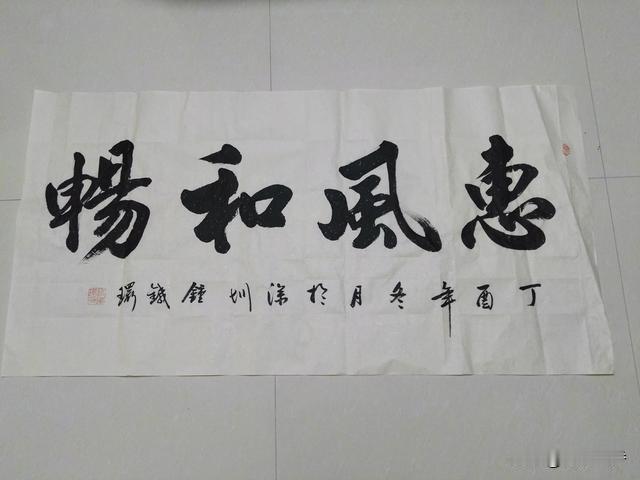 惠風和暢
丁酉年冬月於深圳鐘鐵